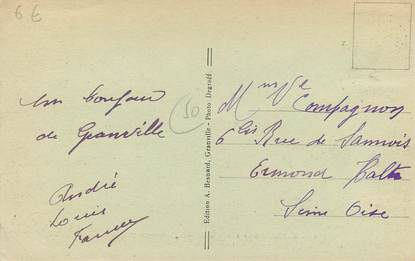 6 €
un bonjour
de Granville
André
Louis
10
Edition A. Besnard, Granville - Photo Dugraff
Mme Ve
Compagnon
6 bis Rue de Sannois
Ermond Halte
Seine Oise